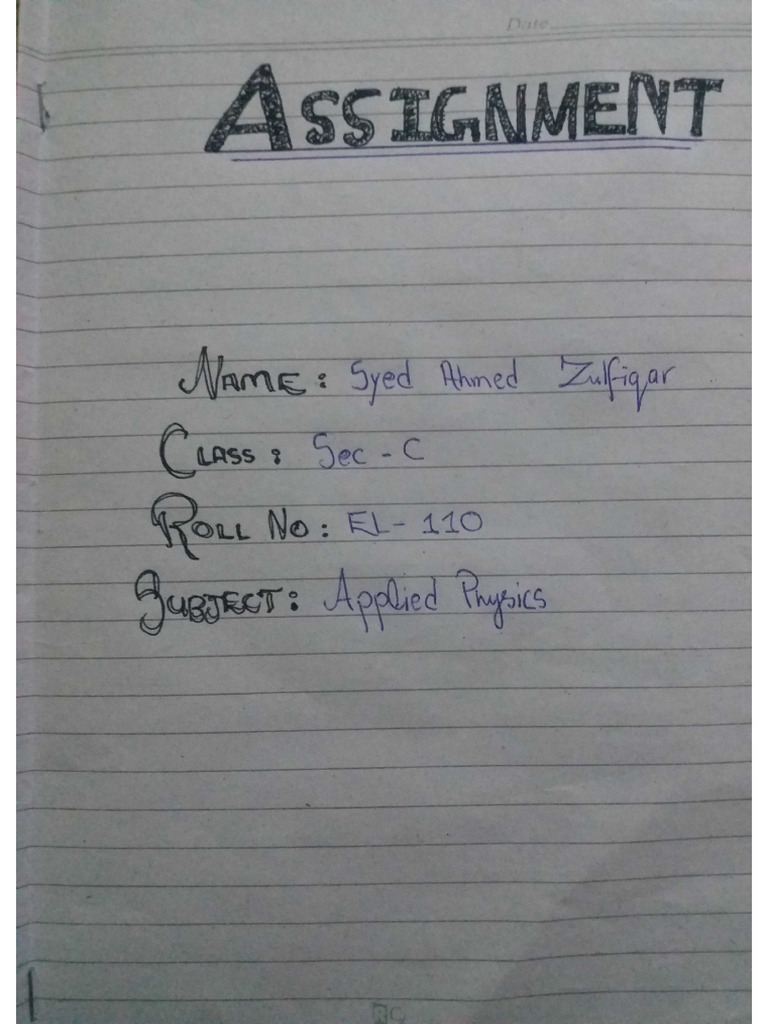 Date
ASSIGNMENT
NAME: Syed Ahmed Zulfiqar
CLASS: Sec-C
ROLL NO: EL-110
SUBJECT: Applied Physics